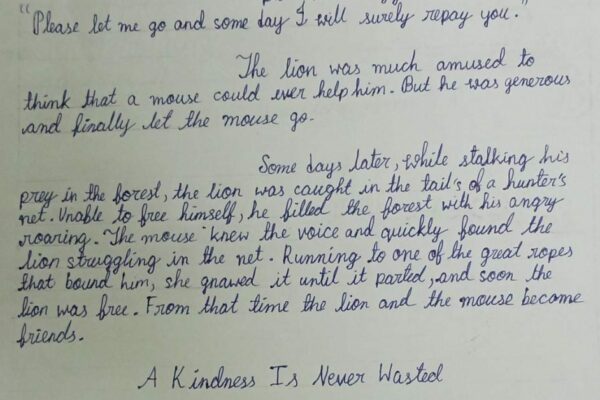 "Please let me go and some day I will surely repay you."
The lion was much amused to
think that a mouse could ever help him. But he was generous
and finally let the mouse go.
Some days later, while stalking his
prey in the forest, the lion was caught in the tail's of a hunter's
net. Unable to free himself, he filled the forest with his angry
roaring. The mouse knew the voice and quickly found the
lion struggling in the net. Running to one of the great ropes
that bound him, she gnawed it until it parted, and soon the
lion was free. From that time the lion and the mouse become
friends.
A Kindness Is Never Wasted